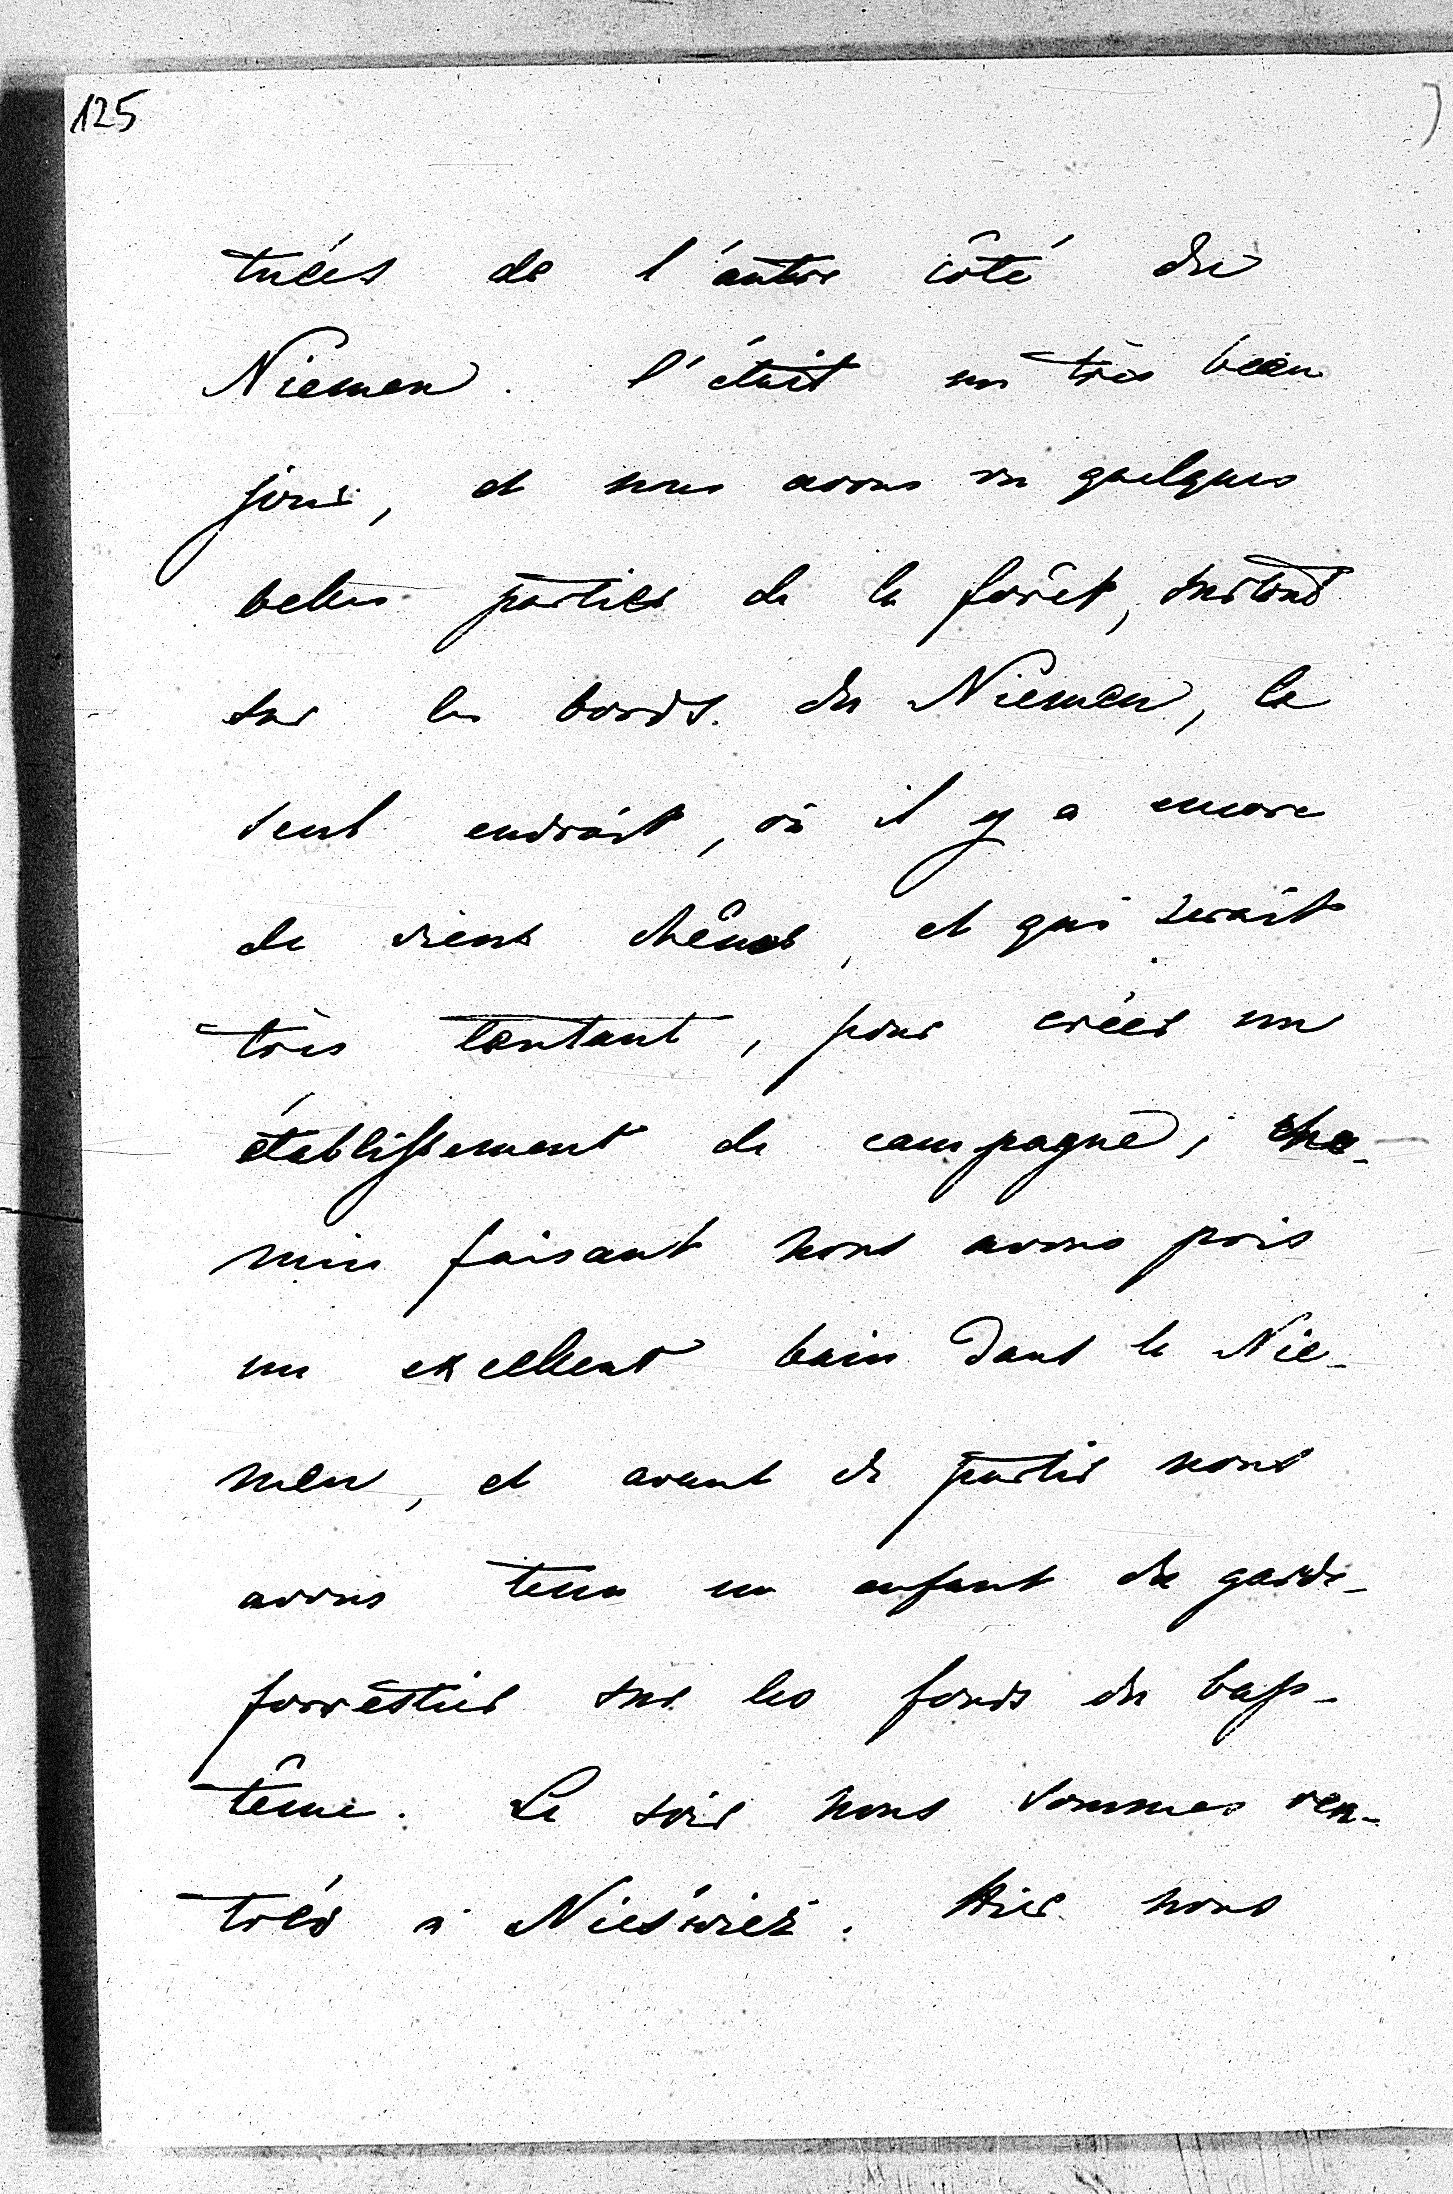 125
tuées de l'autre côté du
Niemen. C'était un très beau
jour, et nous avons vu quelques
belles parties de la forêt, surtout
sur les bords du Niemen, le
seul endroit, où il y a encore
de vieux chênes, et qui serait
très tentant, pour créer un
établissement de campagne; che-
min faisant nous avons pris
un excellent bain dans le Nie-
men, et avant de partir nous
avons tenu un enfant de garde-
forrestier sur les fonds du bap-
tême. Le soir nous sommes ren-
trés à Nieświeź. Hier nous